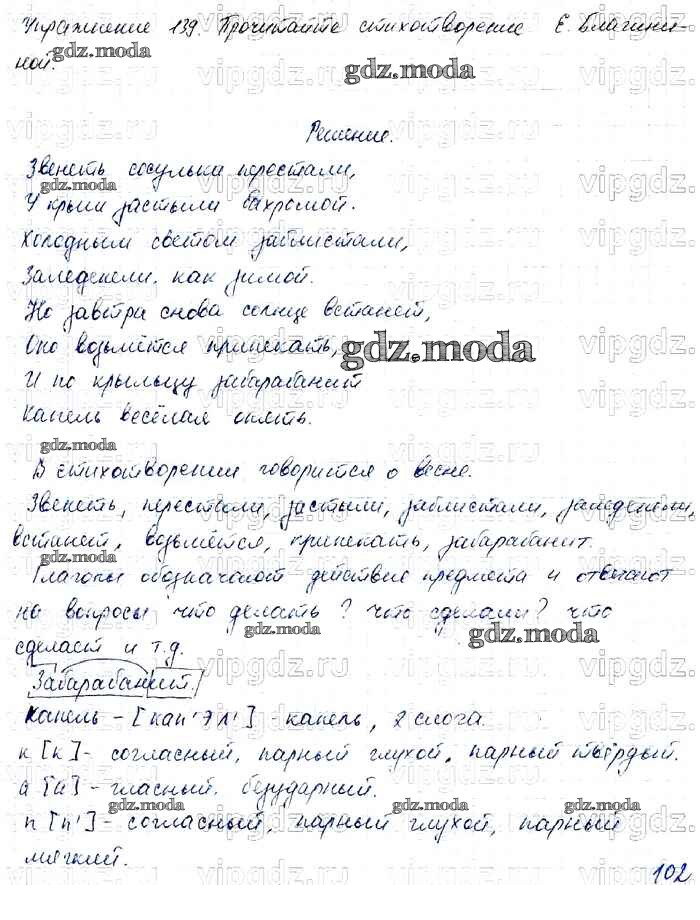 Упражнение 139. Прочитайте стихотворение Е. Благини-
ной.
gdz.moda
Решение.
Звенеть сосульки перестали,
gdz.moda
У крыши застыли бахромой.
Холодным светом заблистали,
Заледенели, как зимой.
Но завтра снова солнце встанет,
Оно возьмётся припекать,
gdz.moda
И по крыльцу забарабанит
Капель весёлая опять.
gdz.moda
В стихотворении говорится о весне.
Звенеть, перестали, застыли, заблистали, заледенели,
встанет, возьмётся, припекать, забарабанит.
gdz.moda
Глаголы обозначают действие предмета и отвечают
на вопросы что делать? что сделали? что
gdz.moda
gdz.moda
сделает и т.д.
Забарабанит.
Капель – [кап'эл'] – капель, 2 слога.
к [к] – согласный, парный глухой, парный твёрдый.
а [а] – гласный, безударный.
gdz.moda
gdz.moda
п [п'] – согласный, парный глухой, парный
мягкий.
102
vipgdz.ru